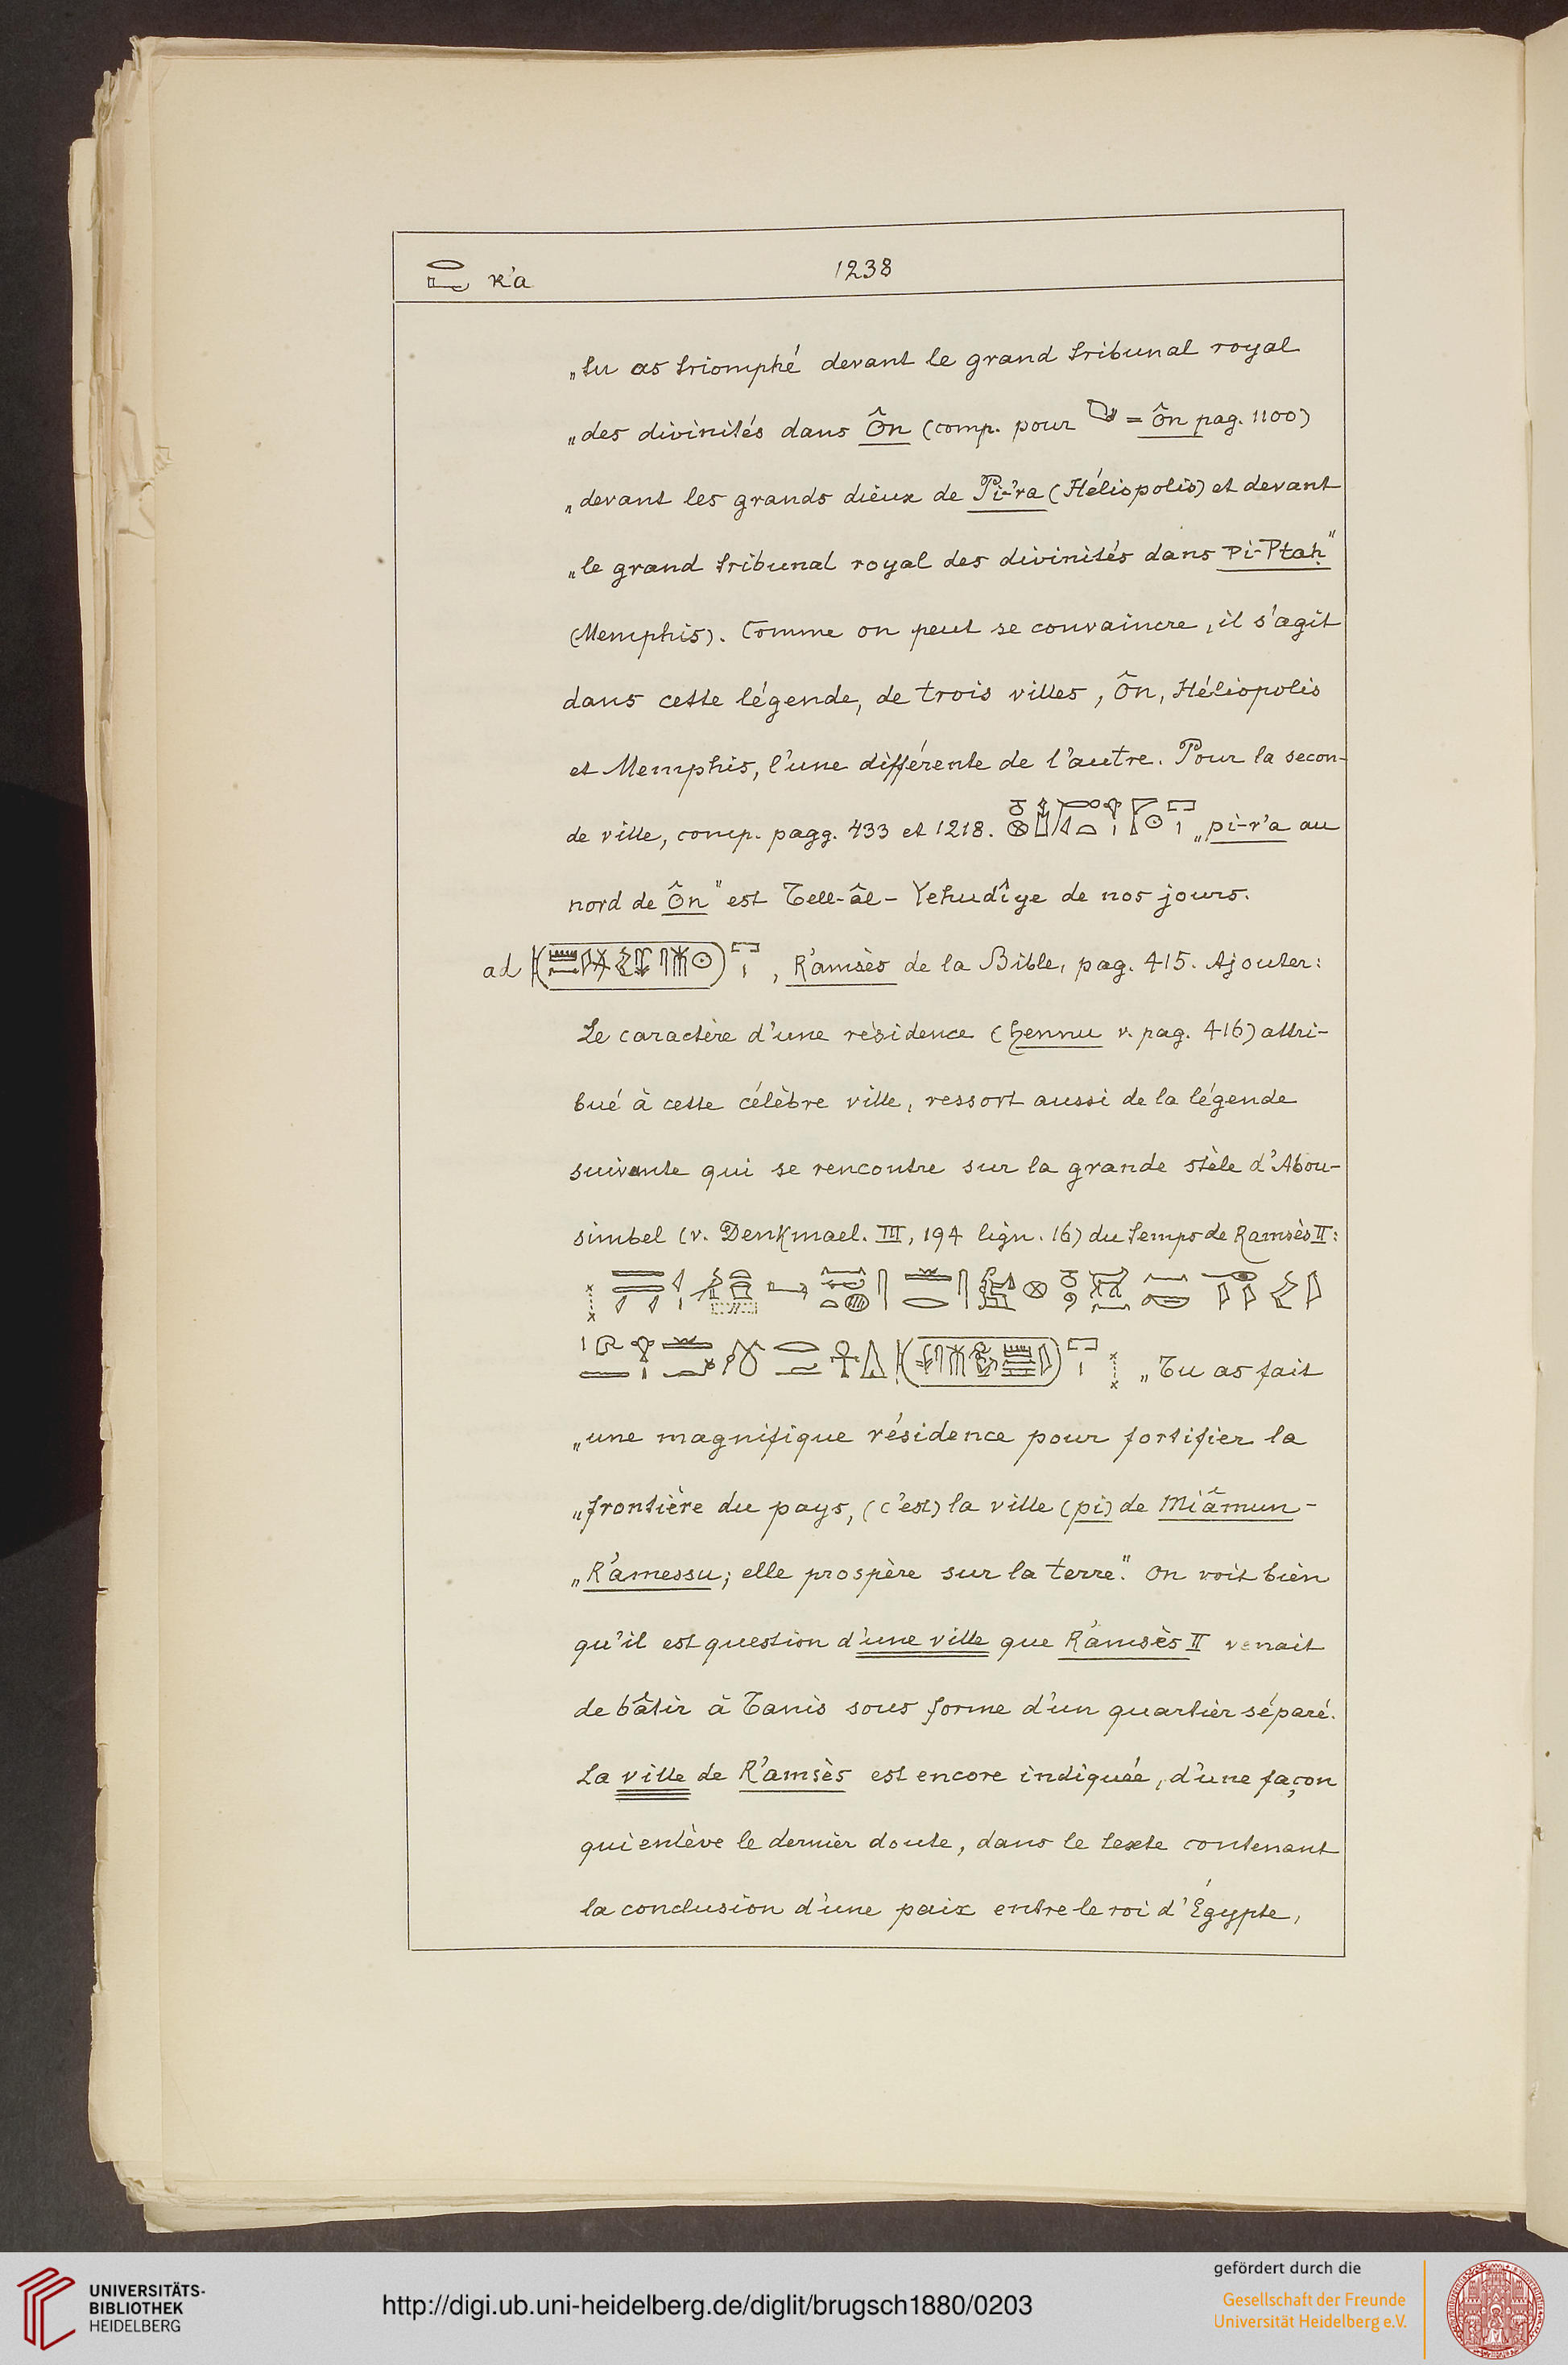 r'a 1238
„tu as triomphé devant le grand tribunal royal
„des divinités dans Ôn (comp. pour = Ôn pag. 1100)
„devant les grands dieux de Pi-'ra (Héliopolis) et devant
„le grand tribunal royal des divinités dans Pi-Ptaḥ"
(Memphis). Comme on peut se convaincre, il s'agit
dans cette légende, de trois villes, Ôn, Héliopolis
et Memphis, l'une différente de l'autre. Pour la secon-
de ville, comp. pagg. 433 et 1218. „pi-r'a au
nord de Ôn" est Tell-âl-Yehudîye de nos jours.
ad , R'amsès de la Bible, pag. 415. Ajouter:
Le caractère d'une résidence (ẖennu v. pag. 416) attri-
bué à cette célèbre ville, ressort aussi de la légende
suivante qui se rencontre sur la grande stèle d'Abou-
simbel (v. Denkmael. III, 194 lign. 16) du temps de Ramsès II:
„Tu as fait
„une magnifique résidence pour fortifier la
„frontière du pays, (c'est) la ville (pi) de Miâmun-
„R'amessu; elle prospère sur la terre." On voit bien
qu'il est question d'une ville que R'amsès II venait
de bâtir à Tanis sous forme d'un quartier séparé.
La ville de R'amsès est encore indiquée, d'une façon
qui enlève le dernier doute, dans le texte contenant
la conclusion d'une paix entre le roi d'Égypte,
UNIVERSITÄTS-
BIBLIOTHEK
HEIDELBERG
http://digi.ub.uni-heidelberg.de/diglit/brugsch1880/0203
gefördert durch die
Gesellschaft der Freunde
Universität Heidelberg e.V.